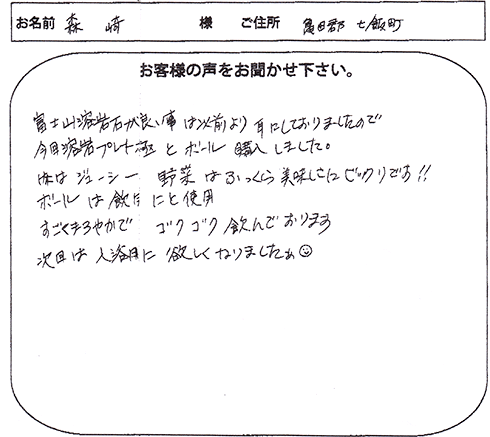 お名前 森崎 様 ご住所 亀田郡七飯町
お客様の声をお聞かせ下さい。
富士山溶岩石が良い事は以前より耳にしておりましたので
今回溶岩プレート極とボール購入しました。
肉はジューシー 野菜はふっくら美味しさにビックリです!!
ボールは飲用にと使用
すごくまろやかで ゴクゴク飲んでおります
次回は入浴用に欲しくなりましたぁ☺